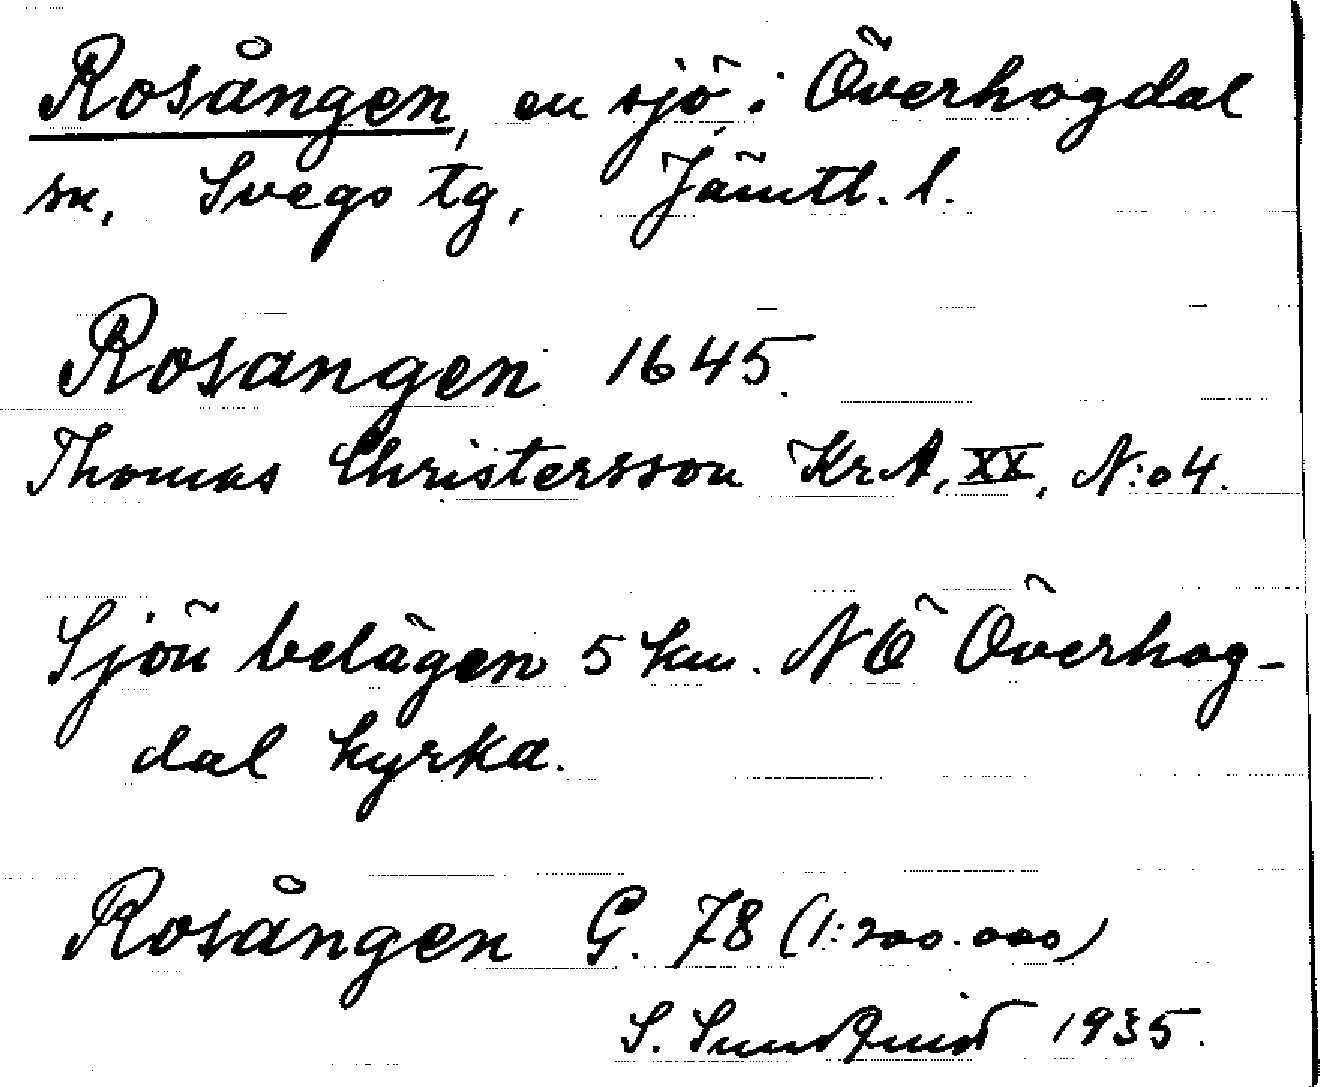 Rosången, en sjö i Överhogdal
sn, Svegs tg, Jämtl. l.
Rosangen 1645.
Thomas Christersson Kr. A, XX, N:o 4.
Sjön belägen 5 km. NÖ Överhog-
dal kyrka.
Rosången G. 78 (1:200.000)
S. Sundquist 1935.